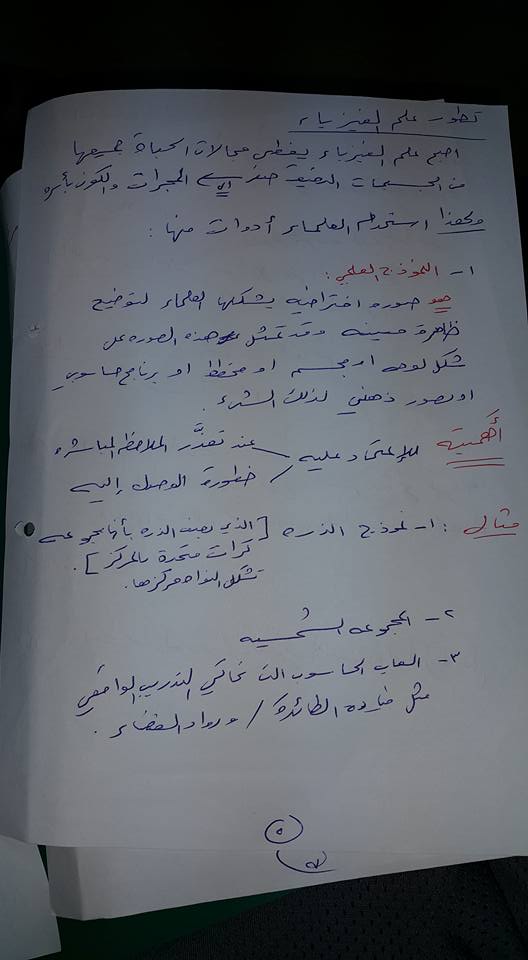 تطور علم الفيزياء
اصبح علم الفيزياء يغطي مجالات الحياة جميعها
من الجسيمات الدقيقة حتى إلى المجرات والكون بأسره
ولهذا استخدم العلماء أدوات منها :
١- النموذج العلمي :
هو صوره افتراضيه يشكلها العلماء لتوضيح
ظاهرة معينه وقد تمثل هذه الصوره على
شكل لوحه او مجسم او مخطط او برنامج حاسوبي
او تصور ذهني لذلك الشيء .
أهميته للإعتماد عليه عند تعذَّر الملاحظه المباشره / خطورة الوصول إليه
مثال : ١- نموذج الذره [ الذي يصف الذره بأنها مجموعه
كرات متحدة بالمركز ] .
تشكل النواه مركزها .
٢- المجموعه الشمسيه
٣- العاب الحاسوب التي تحاكي التدريب الواقعي
مثل قياده الطائرة / ورواد الفضاء .
٥